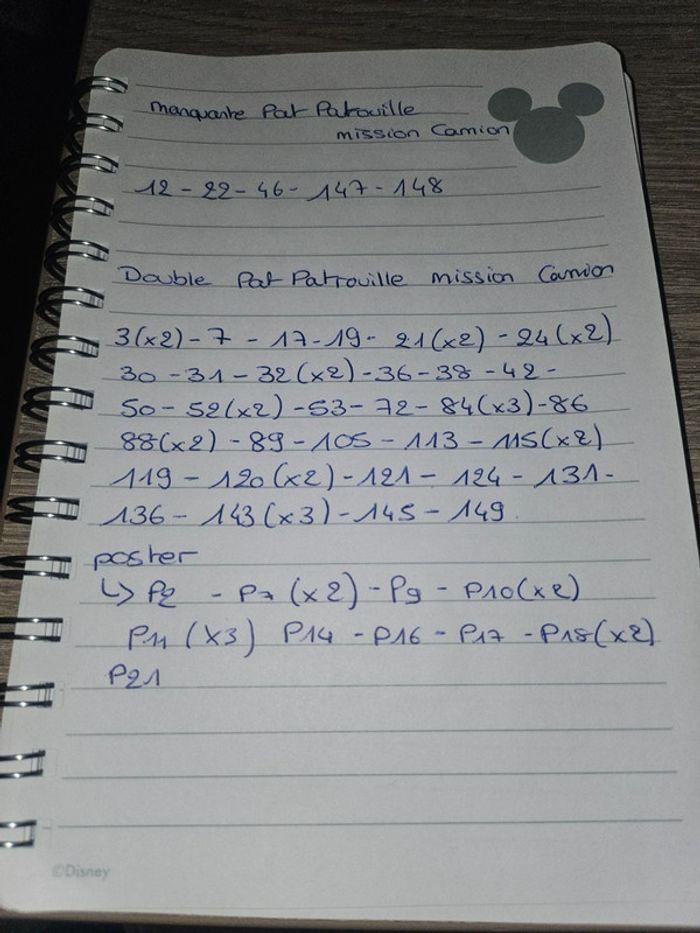 manquante Pat Patrouille
mission Camion
12 - 22 - 46 - 147 - 148
Double Pat Patrouille mission Camion
3(x2) - 7 - 17 - 19 - 21(x2) - 24(x2)
30 - 31 - 32(x2) - 36 - 38 - 42 -
50 - 52(x2) - 53 - 72 - 84(x3) - 86
88(x2) - 89 - 105 - 113 - 115(x2)
119 - 120(x2) - 121 - 124 - 131 -
136 - 143(x3) - 145 - 149.
poster
↳ P2 - P7 (x2) - P9 - P10(x2)
P11 (x3) P14 - P16 - P17 - P18(x2)
P21
©Disney